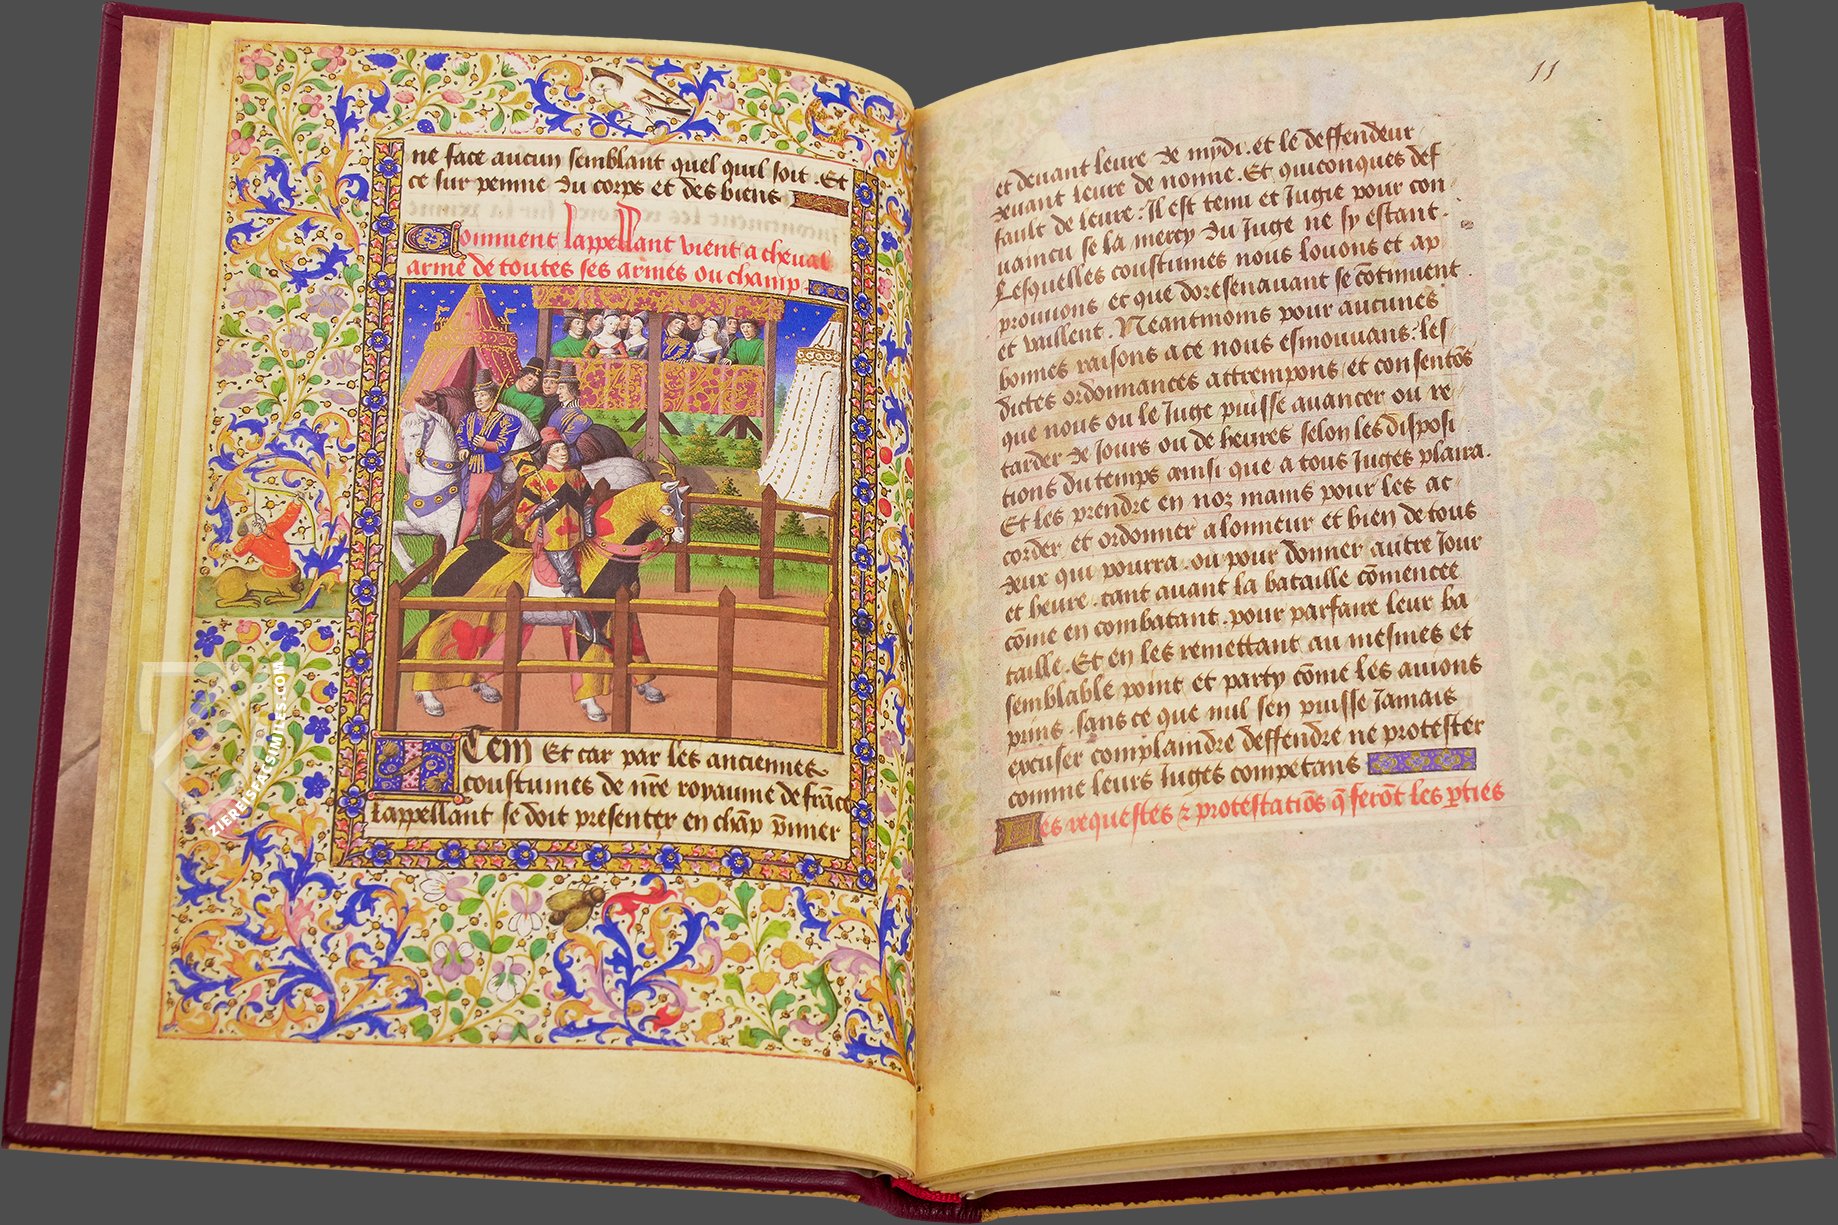 ne face aucun semblant quel quil soit . Et
ce sur penne du corps et des biens
Comment lappellant vient a cheval
armé de toutes ses armes ou champ
Item Et car par les anciennes
coustumes de nre royaume de frāce
lappellant se doit presenter en chāp p̄mier
11
et devant leure de mydi . et le deffendeur
devant leure de nonne . Et quiconques def
fault de leure . Il est tenu et Jugie pour con
vaincu se la mercy du Juge ne sy estant .
Lesquelles coustumes nous louons et ap
prouvons et que doresenavant se cōtinuent
et vaillent . Neantmoins pour aucunes
bonnes raisons a ce nous esmouvans . les
dictes ordonnances attrempons et consentōs
que nous ou le Juge puisse avancer ou re
tarder de Jours ou de heures selon les disposi
tions du temps ainsi que a tous Juges plaira .
Et les prendre en noz mains pour les ac
corder et ordonner a lonneur et bien de tous
deux qui pourra . ou pour donner autre Jour
et heure . tant avant la bataille cōmencee
cōme en combatant . pour parfaire leur ba
taille . Et en les remettant au mesmes et
semblable point et party cōme les avions
prins . sans ce que nul sen puisse Jamais
excuser complaindre deffendre ne protester
comme leurs Juges competans
Les requestes & protestatiōs q̄ ferōt les pties
ZIEREISFACSIMILES.COM